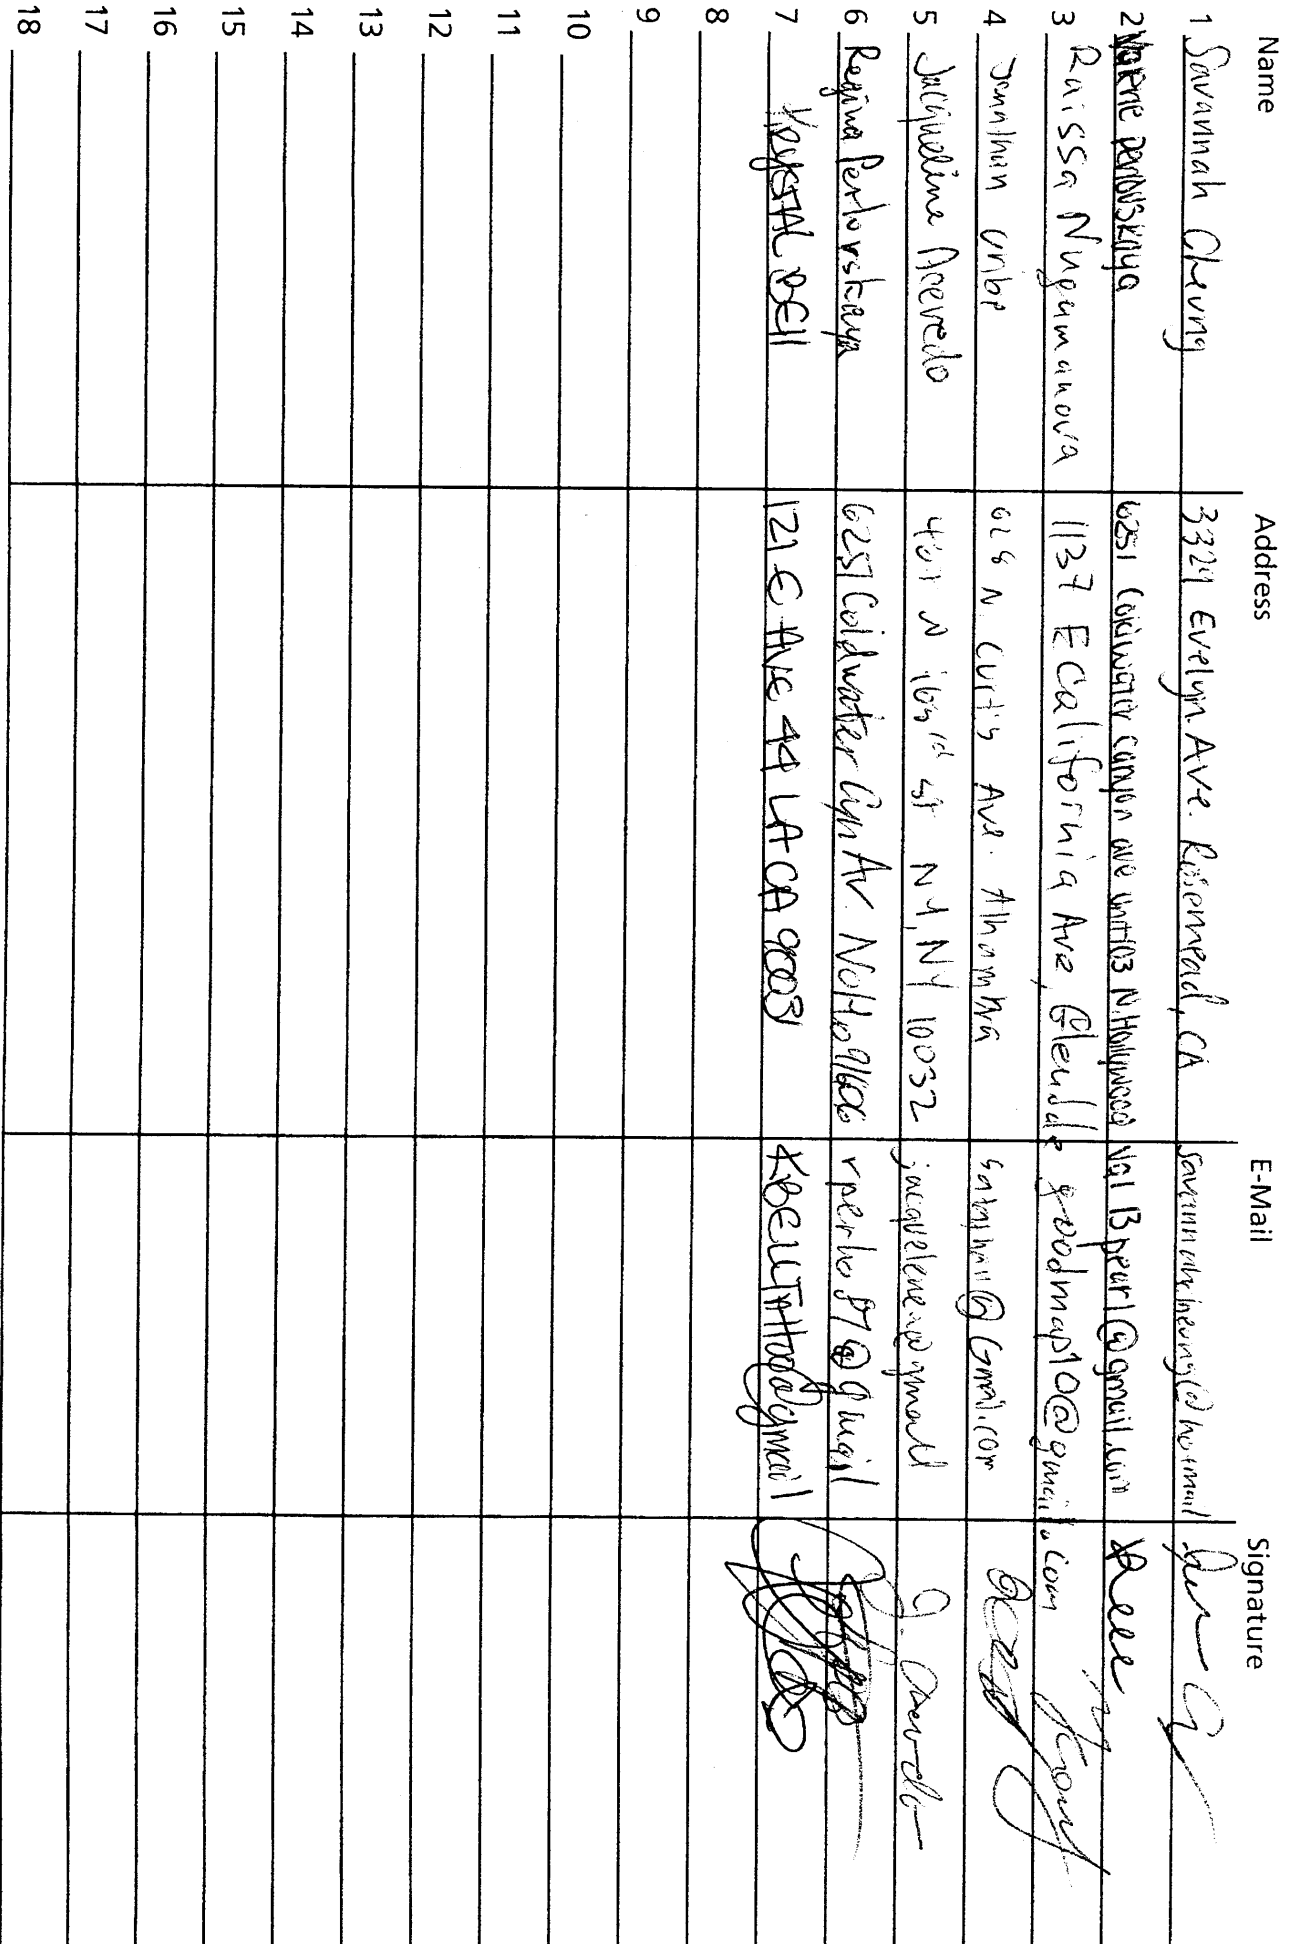 Name Address E-Mail Signature
1 Savannah Cheung 3324 Evelyn Ave. Rosemead, CA savannahcheung@hotmail
2 6251 Coldwater Canyon ave unit 103 N. Hollywood val13pearl@gmail.com
3 Raissa Nugumanova 1137 E California Ave, Glendale goodmap10@gmail.com
4 Jonathan Uribe N. Curtis Ave. Alhambra @Gmail.com
5 Jacqueline Acevedo N st NY, NY 10032 @gmail J. Acevedo
6 Regina Perlovskaya 6251 Coldwater Cyn Av. NoHo 91606 rperlo87@gmail
7 Krystal Bell 121 E AVE 44 LA CA 90031 @gmail
8
9
10
11
12
13
14
15
16
17
18